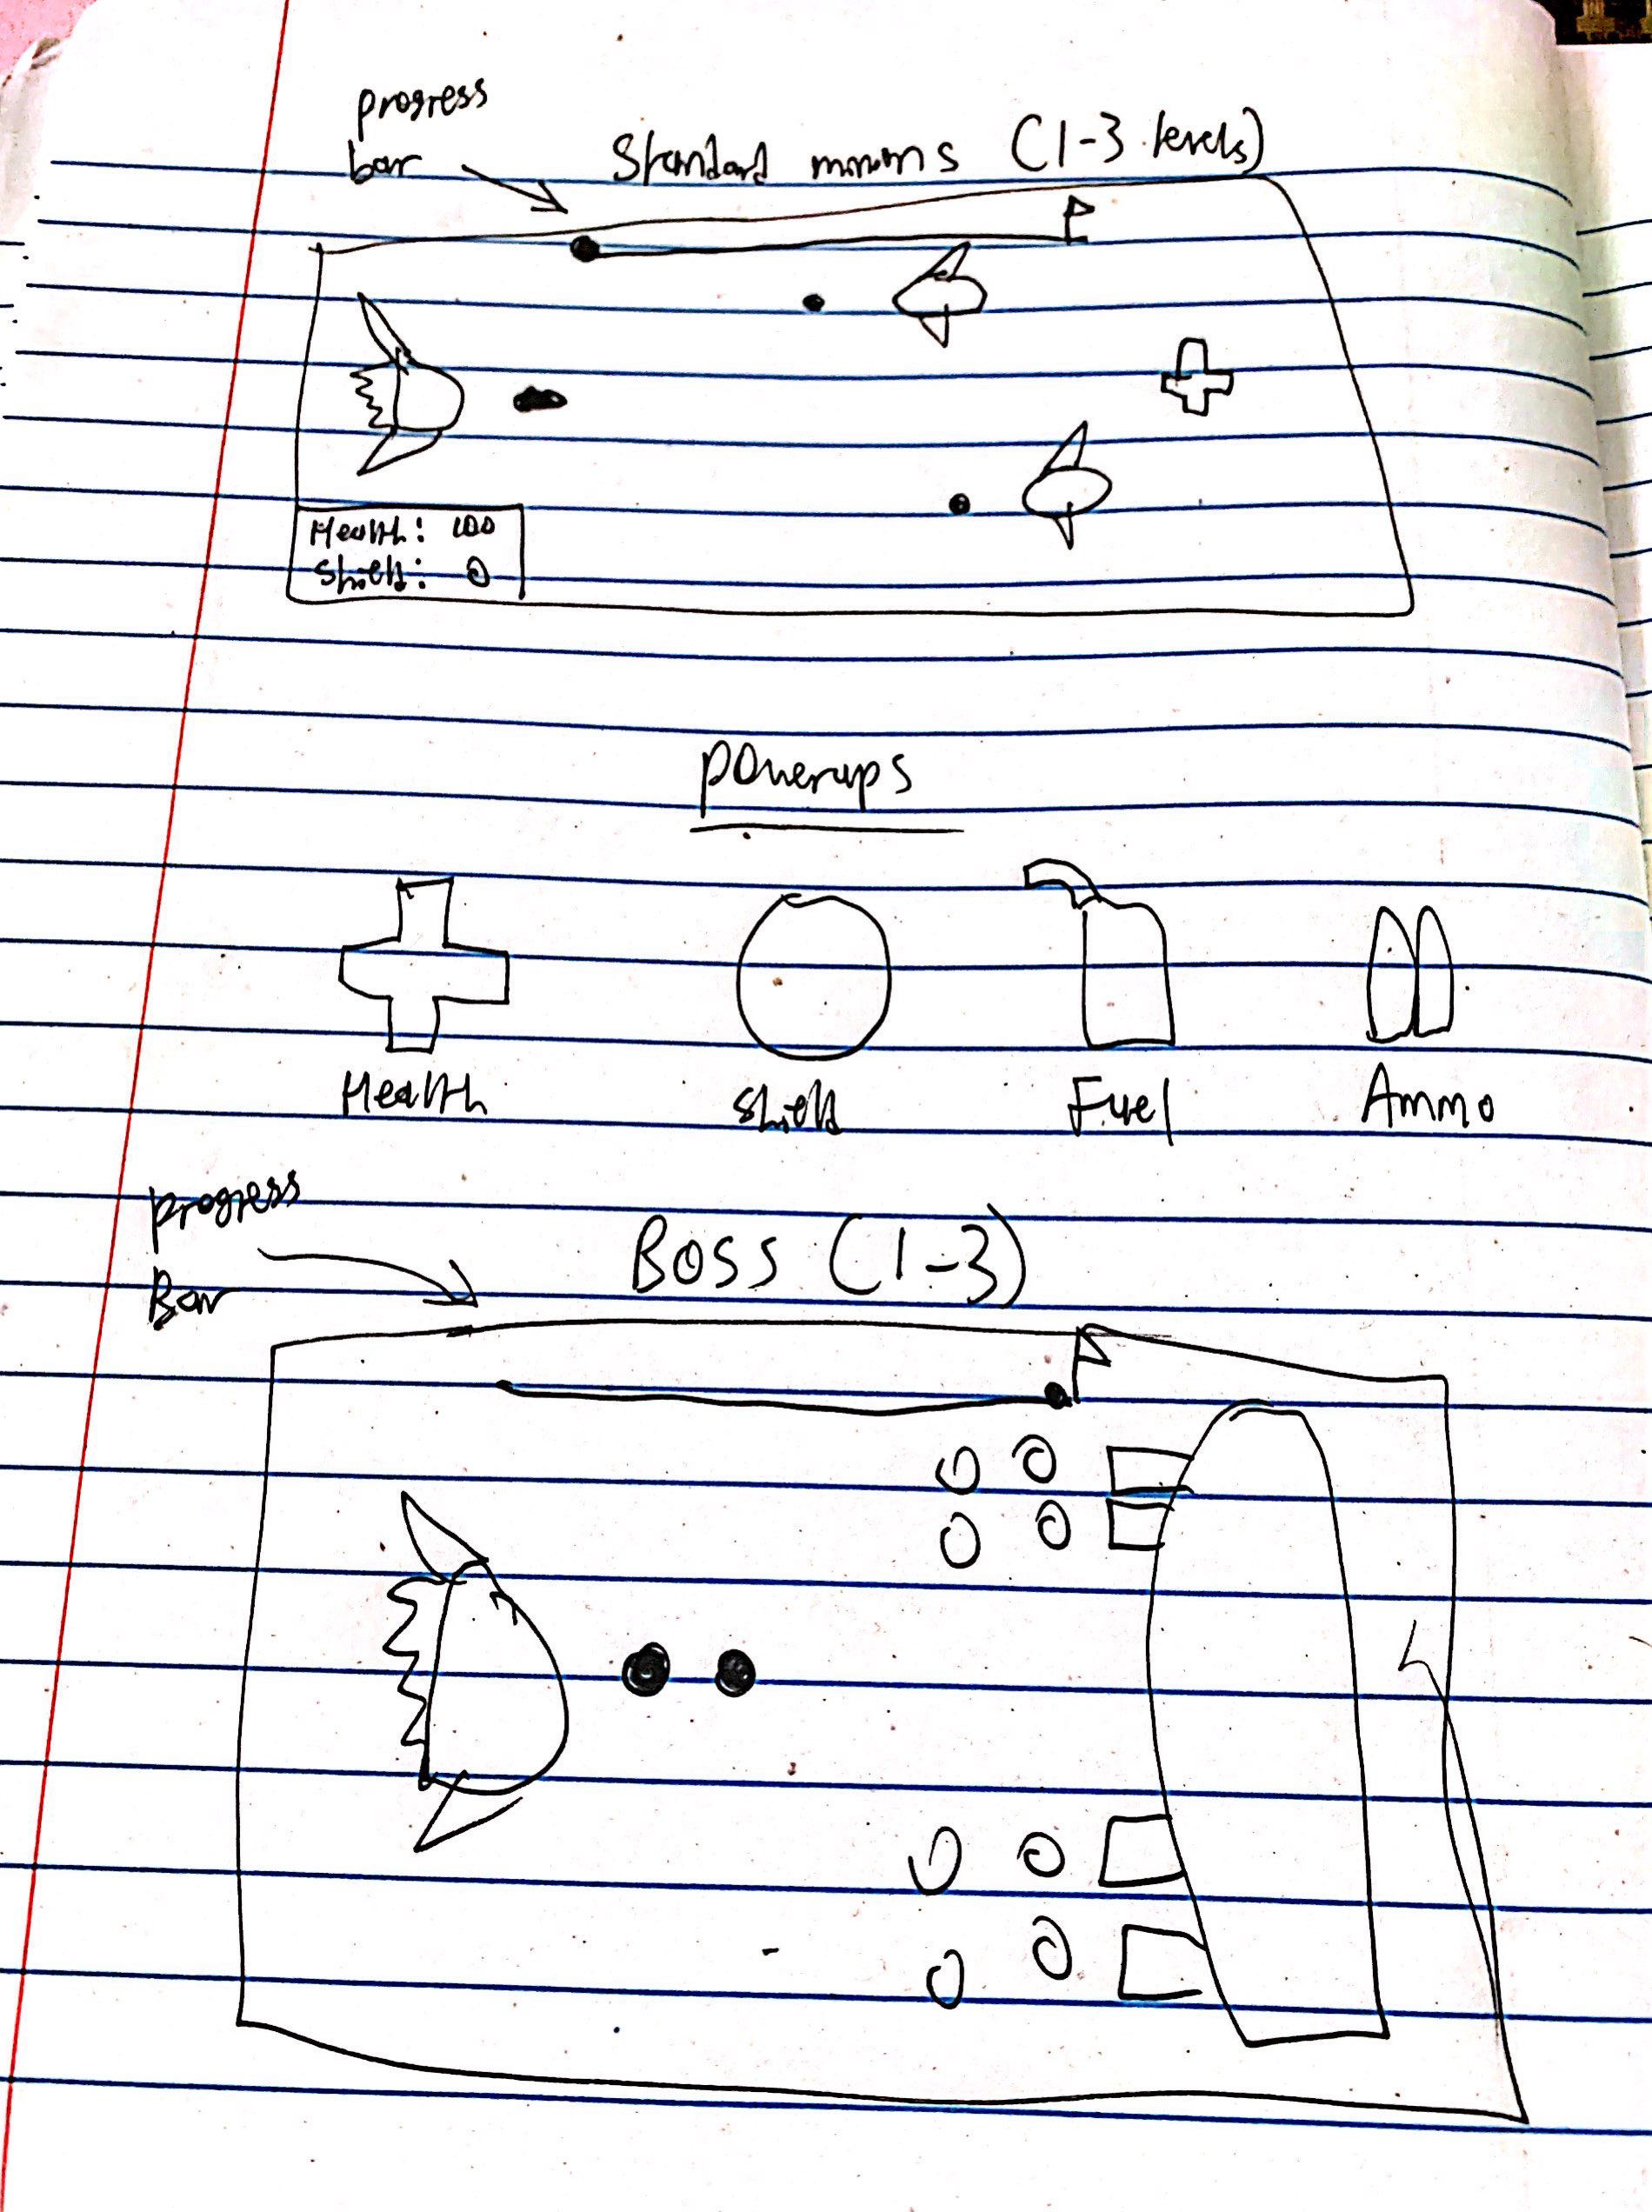 progress
bar
Standard minions (1-3 levels)
Health: 100
Shield: 0
powerups
Health
Shield
Fuel
Ammo
progress
Bar
BOSS (1-3)